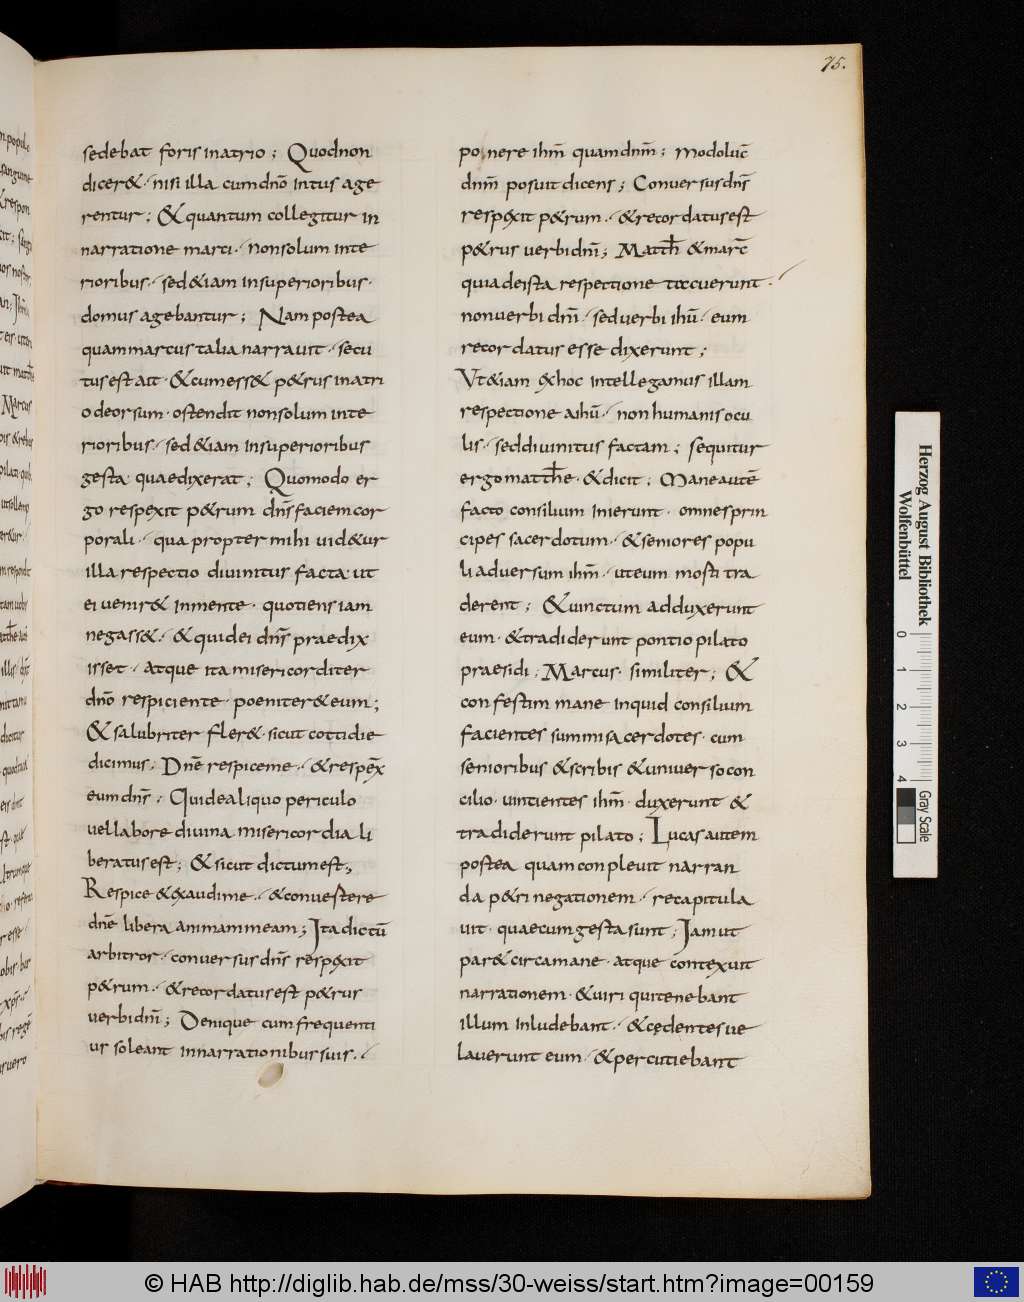 75.
sedebat foris inatrio; Quodnon
dicer&· nisi illa cumdño intus age
rentur; &quantum collegitur in
narratione marci· nonsolum inte
rioribus· sed&iam insuperioribus·
domus agebantur; Nam postea
quammarcus talia narrauit· secu
tus est ait· &cumess& p&rus inatri
o deorsum· ostendit nonsolum inte
rioribus· sed&iam insuperioribus
gesta quaedixerat; Quomodo er
go respexit p&rum dñs faciem cor
porali· qua propter mihi uid&ur
illa respectio diuinitus facta ut
ei uenir& inmente· quotiens iam
negass&· &quidei dñs praedix
isset· atque ita misericorditer
dño respiciente· poeniter&eum;
&salubriter fler&· sicut cottidie
dicimus; Dñe respiceme· &respex̄
eumdñs; Quidealiquo periculo
uellabore diuina misericordia li
beratus est; &sicut dictum est;
Respice &exaudime· &conuestere
dñe libera animammeam; Ita dictū
arbitror· conuersus dñs respexit
p&rum· &recordatus est p&rus
uerbi dñi; Denique cum frequenti
us soleant innarrationibus suis·
ponere ihm̄ quam dnm̄; modo luc̄
dnm̄ posuit dicens; Conuersus dñs
respexit p&rum· &recordatus est
p&rus uerbi dñi; Matth̄ &marc̄
quia deista respectione tacuerunt·
non uerbi dñi· sed uerbi ihū· eum
recordatus esse dixerunt;
Vt&iam exhoc intellegamus illam
respectione aihū· non humanis ocu
lis· sed diuinitus factam; sequitur
ergo matth̄e· &dicit; Mane autē
facto consilium inierunt· omnes prin
cipes sacerdotum· &seniores popu
li aduersum ihm̄· ut eum morti tra
derent; &uinctum adduxerunt
eum· &tradiderunt pontio pilato
praesidi; Marcus· similiter; &
confestim mane inquid consilium
facientes summi sacerdotes· cum
senioribus &scribis &uniuerso con
cilio· uintientes ihm̄· duxerunt &
tradiderunt pilato; Lucas autem
postea quam conpleuit narran
da p&ri negationem· recapitula
uit· quaecumgesta sunt; Iam ut
par& circa mane· atque contexuit
narrationem· &uiri qui tenebant
illum inludebant· &cedentes ue
lauerunt eum· &percutiebant
Herzog August Bibliothek
Wolfenbüttel
0 1 2 3 4
Gray Scale
© HAB http://diglib.hab.de/mss/30-weiss/start.htm?image=00159